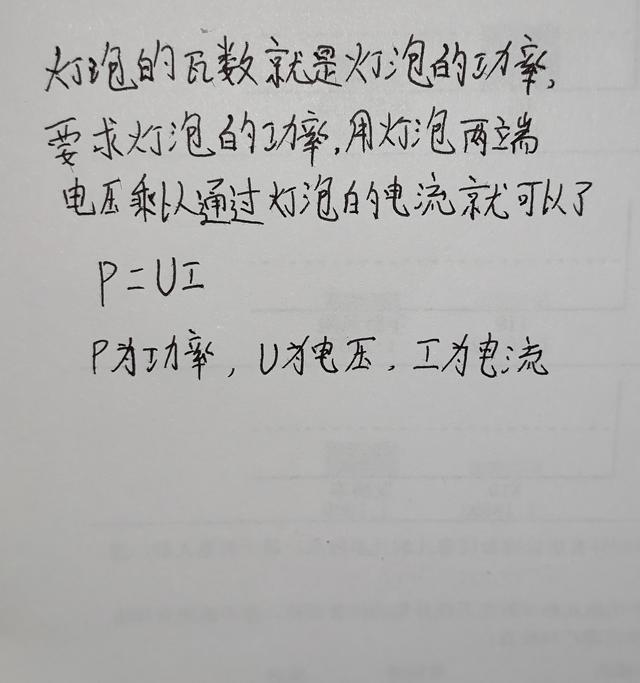 灯泡的瓦数就是灯泡的功率,
要求灯泡的功率,用灯泡两端
电压乘以通过灯泡的电流就可以了
P=UI
P为功率,U为电压,I为电流